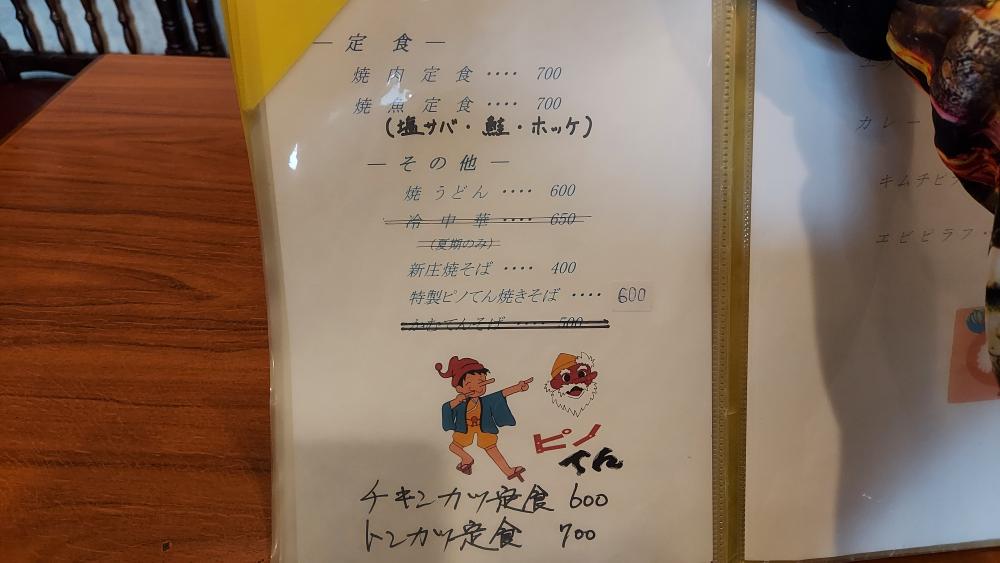 ― 定 食 ―
焼 肉 定 食 ‥‥ 700
焼 魚 定 食 ‥‥ 700
(塩サバ・鮭・ホッケ)
― そ の 他 ―
焼 うどん ‥‥ 600
冷 中 華 ‥‥ 650
(夏期のみ)
新庄焼そば ‥‥ 400
特製ピノてん焼きそば ‥‥ 600
かむてんそば ‥‥ 500
ピノ
てん
チキンカツ定食 600
トンカツ定食 700
カレー
キムチピ
エビピラフ・